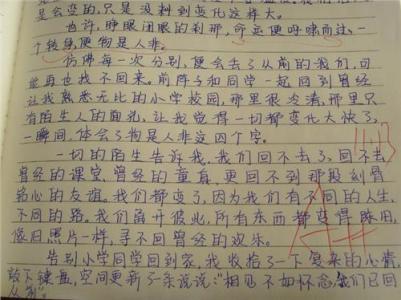 是会变的,只是没料到变化这样大。
也许,睁眼闭眼的刹那,命运便呼啸而过,一
个转身,便物是人非。
仿佛每一次分别,便会丢了从前的我们,可
能再也找不回来。前阵子和同学一起回到曾经
让我熟悉无比的小学校园,那里很冷清,那里只
有陌生人的面孔,让我觉得一切都变化太快了,
一瞬间,体会了物是人非这四个字。
一切的陌生告诉我,我们回不去了,回不去
曾经的课堂,曾经的童真,更回不到那段刻骨
铭心的友谊。我们都变了,因为我们有不同的人生,
不同的路。我们离开彼此,所有东西都变得陈旧,
像旧照片一样,寻不回曾经的欢乐。
告别小学同学回到家,我收拾了一下复杂的心情,
敲下键盘,空间更新了一条说说:"相见不如怀念,我们已回